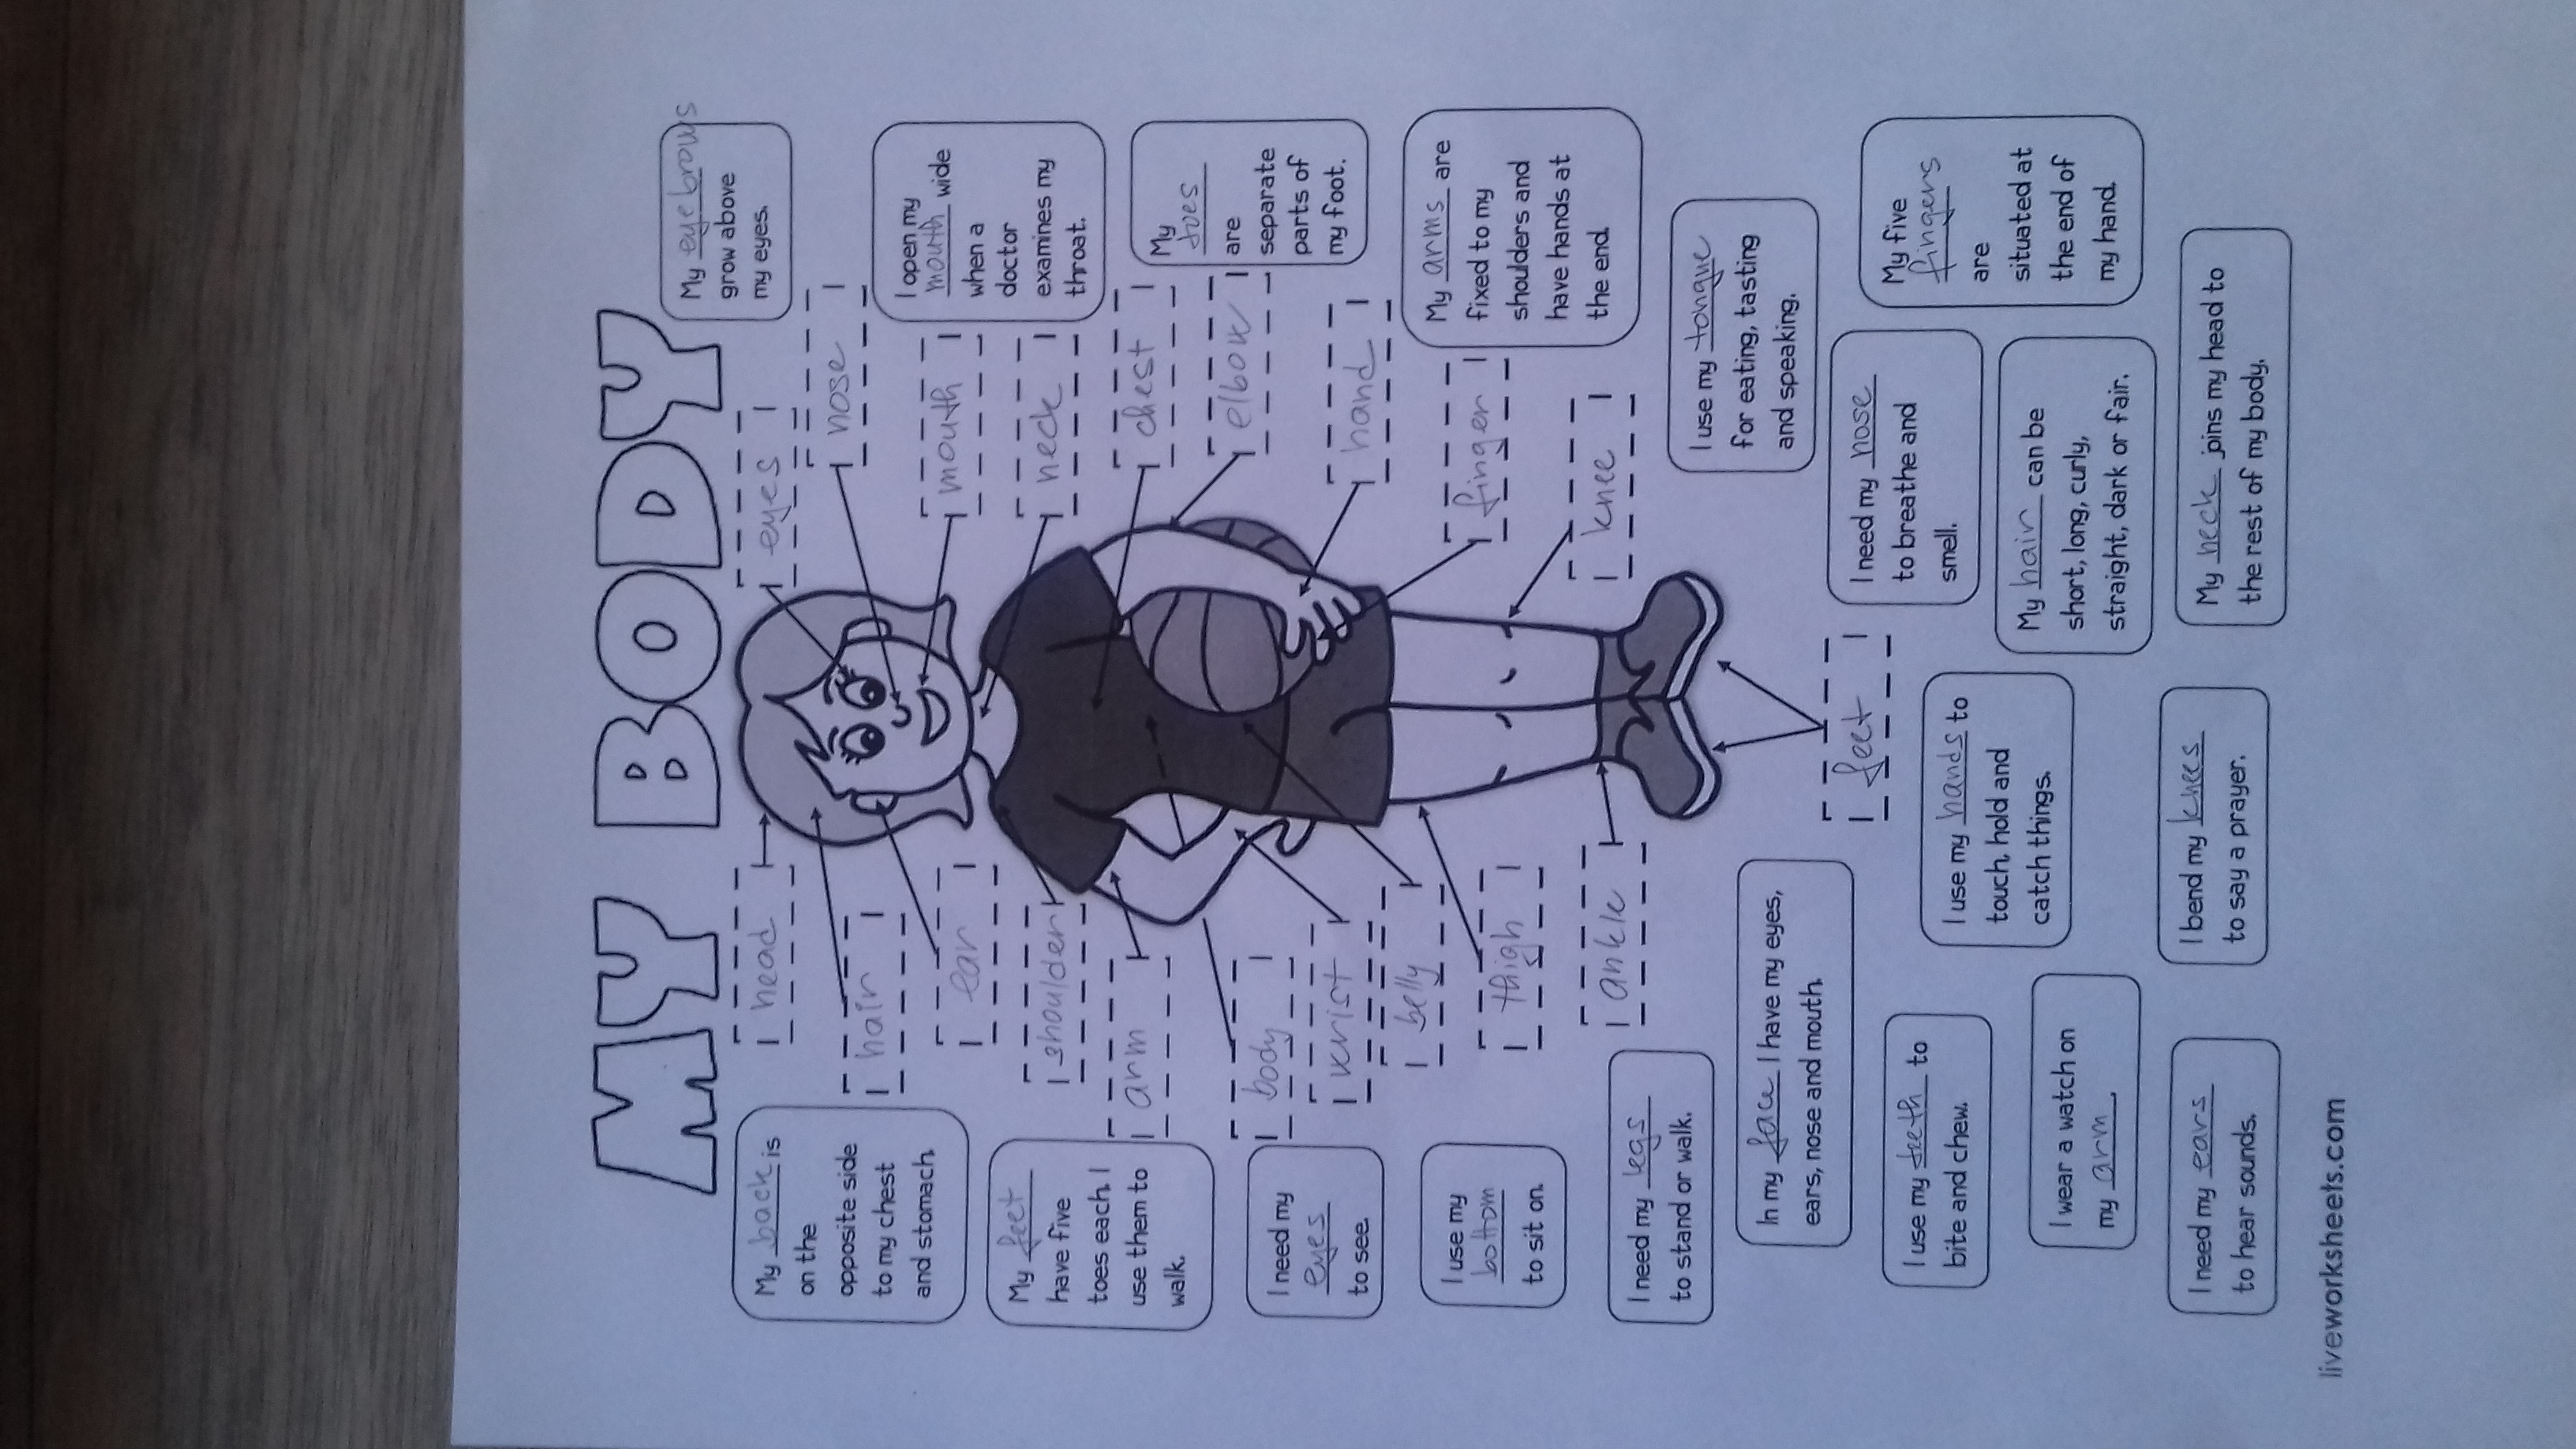 MY BODY
My back is
on the
opposite side
to my chest
and stomach.
My feet
have five
toes each. I
use them to
walk.
I need my
eyes
to see.
I use my
bottom
to sit on.
I need my legs
to stand or walk.
head
hair
ear
shoulder
arm
body
wrist
belly
thigh
ankle
eyes
nose
mouth
neck
chest
elbow
hand
finger
knee
feet
My eye brows
grow above
my eyes.
I open my
mouth wide
when a
doctor
examines my
throat.
My
toes
are
separate
parts of
my foot.
My arms are
fixed to my
shoulders and
have hands at
the end.
In my face I have my eyes,
ears, nose and mouth.
I use my teeth to
bite and chew.
I wear a watch on
my arm.
I need my ears
to hear sounds.
I use my hands to
touch, hold and
catch things.
I bend my knees
to say a prayer.
I use my tongue
for eating, tasting
and speaking.
I need my nose
to breathe and
smell.
My hair can be
short, long, curly,
straight, dark or fair.
My five
fingers
are
situated at
the end of
my hand.
My neck joins my head to
the rest of my body.
liveworksheets.com